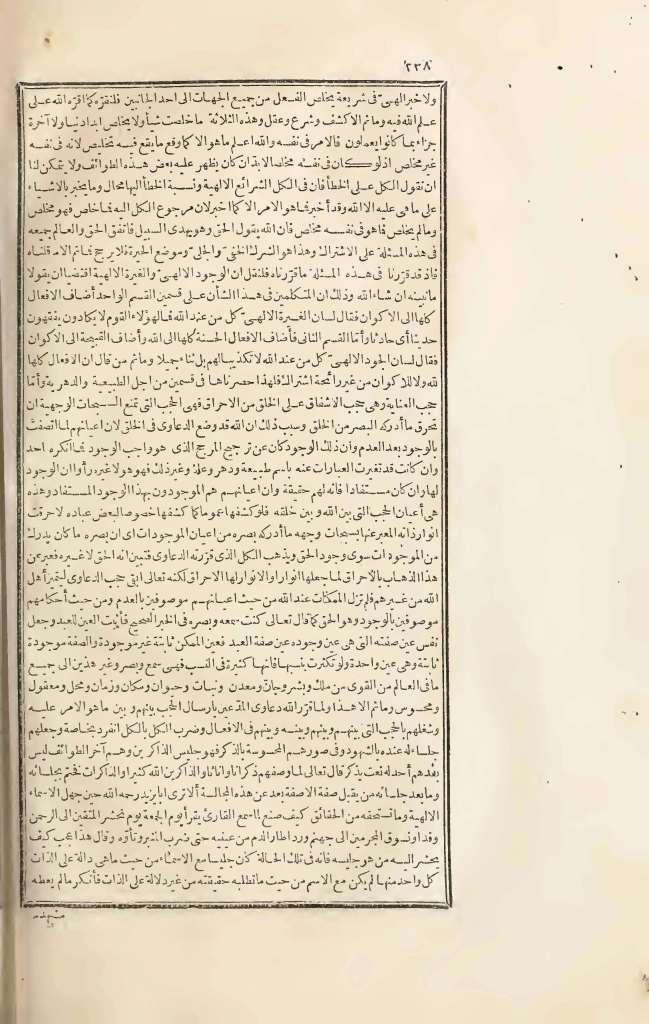 ٢٣٨
ولا خبر الهى فى شريعة يخلص الفعل من جميع الجهات الى احد الجانبين فلنقره كما اقره الله على
علم الله فيه وما ثم الا كشف وشرع وعقل وهذه الثلاثة ما خلصت شيأ ولا يخلص ابدا دنيا ولا آخرة
جزاء بما كانوا يعملون فالامر فى نفسه والله اعلم ما هو الا كما وقع ما يقع فيه تخليص لانه فى نفسه
غير مخلص اذ لو كان فى نفسه مخلصا لابد ان كان يظهر عليه بعض هذه الطوائف ولا يتمكن لنا
ان نقول الكل على الخطأ فان فى الكل الشرائع الالهية ونسبة الخطأ اليها محال وما يخبر بالاشياء
على ما هى عليه الا الله وقد أخبر فما هو الامر الا كما اخبر لان مرجوع الكل اليه فما خلص فهو مخلص
وما لم يخلص فما هو فى نفسه مخلص فان الله يقول الحق وهو يهدى السبيل فاتفق الحق والعالم جميعه
فى هذه المسئلة على الاشتراك وهذا هو الشرك الخفى والجلى وموضع الحيرة فلا يرجح فما ثم الا ما قلناه
فاذ قد قررنا فى هذه المسئلة ما قررناه فلنقل ان الوجود الالهى والغيرة الالهية اقتضيا ان يقولا
ما نبينه ان شاء الله وذلك ان المتكلمين فى هذا الشأن على قسمين القسم الواحد أضاف الافعال
كلها الى الاكوان فقال لسان الغيرة الالهى كل من عند الله فمال هؤلاء القوم لا يكادون يفقهون
حديثا أى حادثا وأما القسم الثانى فأضاف الافعال الحسنة كلها الى الله وأضاف القبيحة الى الاكوان
فقال لسان الجود الالهى كل من عند الله لا تكذيبا لهم بل ثناء جميلا وما ثم من قال ان الافعال كلها
لله ولا للاكوان من غير رائحة اشتراك فلهذا حصرناها فى قسمين من اجل الطبيعية والدهرية وأما
حجب العناية وهى حجب الاشفاق على الخلق من الاحراق فهى الحجب التى تمنع السبحات الوجهية ان
تحرق ما أدركه البصر من الخلق وسبب ذلك ان الله قد وضع الدعاوى فى الخلق لان اعيانهم لما اتصفت
بالوجود بعد العدم وان ذلك الوجود كان عن ترجيح المرجح الذى هو واجب الوجود فما أنكره احد
وان كانت قد تغيرت العبارات عنه باسم طبيعة ودهر وعلة وغير ذلك فهو هو لا غيره رأوا ان الوجود
لها وان كان مستفادا فانه لهم حقيقة وان اعيانهم هم الموجودون بهذا الوجود المستفاد وهذه
هى أعيان الحجب التى بين الله وبين خلقه فلو كشفها عموما كما كشفها خصوصا لبعض عباده لاحرقت
انوار ذاته المعبر عنها بسبحات وجهه ما أدركه بصره من اعيان الموجودات اى ان بصره ما كان يدرك
من الموجودات سوى وجود الحق ويذهب الكل الذى قررته الدعاوى فتبين انه الحق لا غيره فعبر عن
هذا الذهاب بالاحراق لما جعلها انوارا والانوار لها الاحراق لكنه تعالى ابقى حجب الدعاوى ليتميز أهل
الله من غيرهم فلم تزل الممكنات عند الله من حيث اعيانهم موصوفين بالعدم ومن حيث أحكامهم
موصوفين بالوجود وهو الحق كما قال تعالى كنت سمعه وبصره فى الخبر الصحيح فأثبت العين للعبد وجعل
نفس عين صفته التى هى عين وجوده عين صفة العبد فعين الممكن ثابتة غير موجودة والصفة موجودة
ثابتة وهى عين واحدة ولو تكثرت بنسبها فانها كثيرة فى النسب فهى سمع وبصر وغير هذين الى جميع
ما فى العالم من القوى من ملك وبشر وجان ومعدن ونبات وحيوان ومكان وزمان ومحل ومعقول
ومحسوس وما ثم الا هذا ولما قرر الله دعاوى المدعين بارسال الحجب بينهم وبين ما هو الامر عليه
وشغلهم بالحجب التى بينهم وبينهم وبينه وبينهم فى الافعال وضرب الكل بالكل انفرد بخاصة وجعلهم
جلساء له عنده بالشهود وفى صورهم المحسوسة بالذكر فهو جليس الذاكرين وهم آخر الطوائف ليس
بعدهم أحد له نعت يذكر قال تعالى لما وصفهم ذكرانا واناثا والذاكرين الله كثيرا والذاكرات فختم بجلسائه
وما بعد جلسائه من يقبل صفة الا صفة بعد عن هذه المجالسة ألا ترى ابا يزيد رحمه الله حين جهل الاسماء
الالهية وما تستحقه من الحقائق كيف صنع لما سمع القارئ يقرأ يوم الجمعة يوم نحشر المتقين الى الرحمن
وفدا ونسوق المجرمين الى جهنم وردا طار الدم من عينيه حتى ضرب المنبر وتأوه وقال هذا عجب كيف
يحشر اليه من هو جليسه فانه فى تلك الحالة كان جليسا مع الاسماء من حيث ما هى دالة على الذات
كل واحد منها لم يكن مع الاسم من حيث ما تطلبه حقيقته من غير دلالة على الذات فأنكر ما لم يعطه